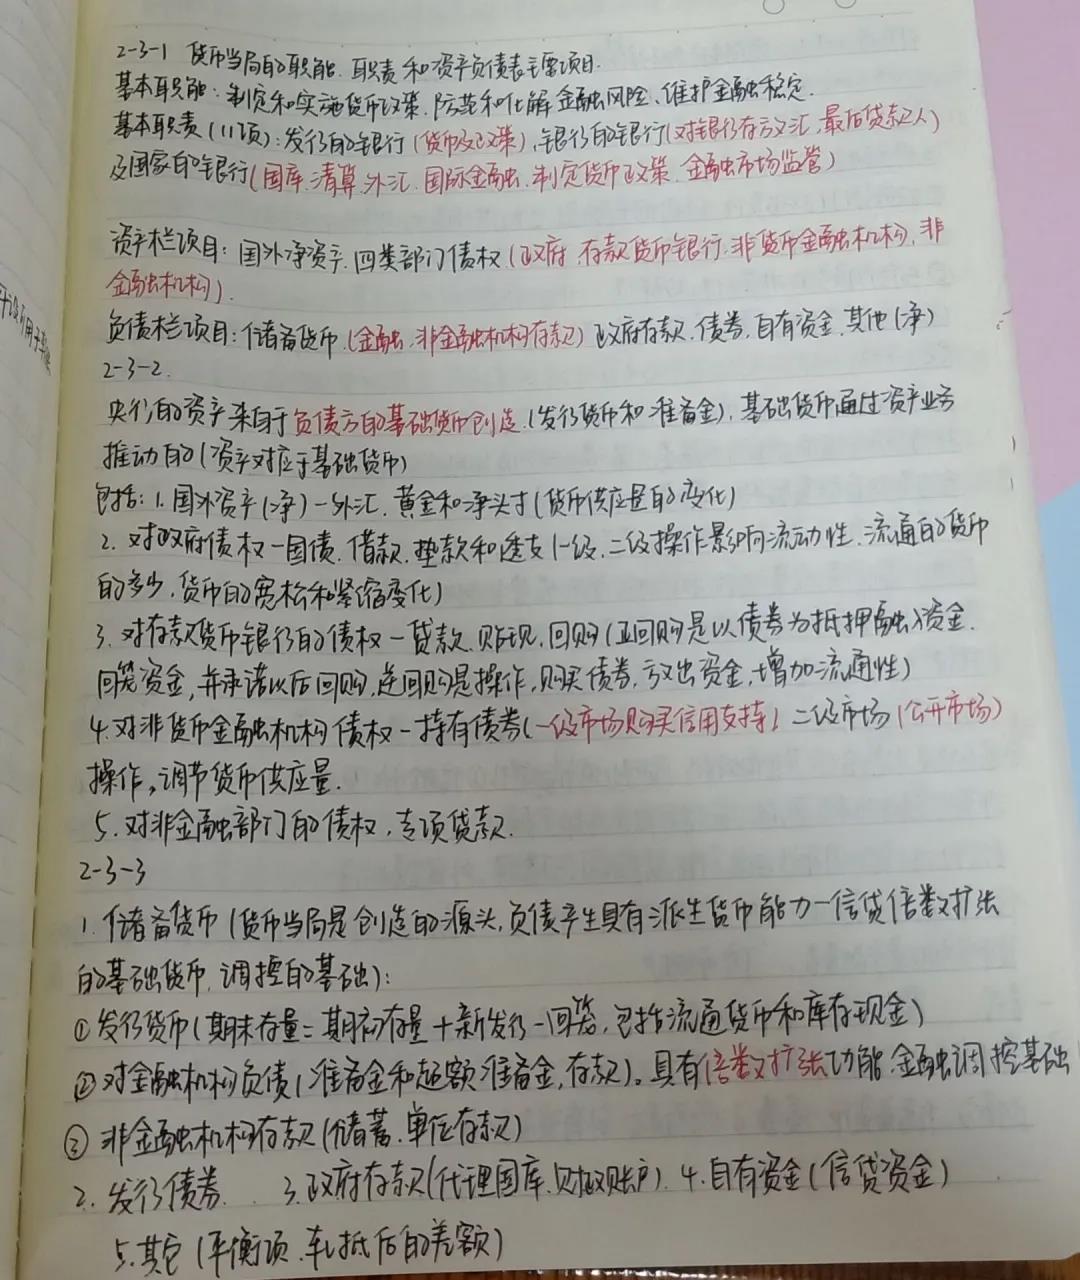 2-3-1 货币当局的职能、职责和资产负债表主要项目.
基本职能:制定和实施货币政策、防范和化解金融风险、维护金融稳定.
基本职责(11项):发行的银行(货币及政策)、银行的银行(对银行存放汇、最后贷款人)
及国家的银行(国库、清算、外汇、国际金融、制定货币政策、金融市场监管)
资产栏项目:国外净资产、四类部门债权(政府、存款货币银行、非货币金融机构、非
金融机构).
负债栏项目:储备货币(金融、非金融机构存款)政府存款、债券、自有资金、其他(净)
2-3-2.
央行的资产来自于负债方的基础货币创造(发行货币和准备金),基础货币通过资产业务
推动的(资产对应于基础货币)
包括:1.国外资产(净)-外汇、黄金和净头寸(货币供应量的变化)
2.对政府债权-国债、借款、垫款和透支(一级、二级操作影响流动性、流通的货币
的多少,货币的宽松和紧缩变化)
3.对存款货币银行的债权-贷款、贴现、回购(正回购是以债券为抵押融入资金.
回笼资金,并承诺以后回购,逆回购是操作,购买债券,放出资金,增加流通性)
4.对非货币金融机构债权-持有债券(一级市场购买信用支持)二级市场(公开市场)
操作,调节货币供应量.
5.对非金融部门的债权,专项贷款.
2-3-3
1.储备货币(货币当局是创造的源头,负债产生具有派生货币能力-信贷倍数扩张
的基础货币,调控的基础):
①发行货币(期末存量=期初存量+新发行-回笼,包括流通货币和库存现金)
②对金融机构负债(准备金和超额准备金,存款)。具有倍数扩张功能.金融调控基础
③非金融机构存款(储蓄、单位存款)
2.发行债券. 3.政府存款(代理国库、财政账户). 4.自有资金(信贷资金)
5.其它(平衡项、轧抵后的差额)